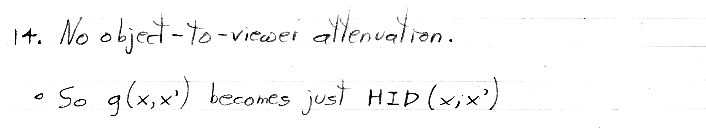 14. No object-to-viewer attenuation.
• So g(x,x') becomes just HID(x,x')